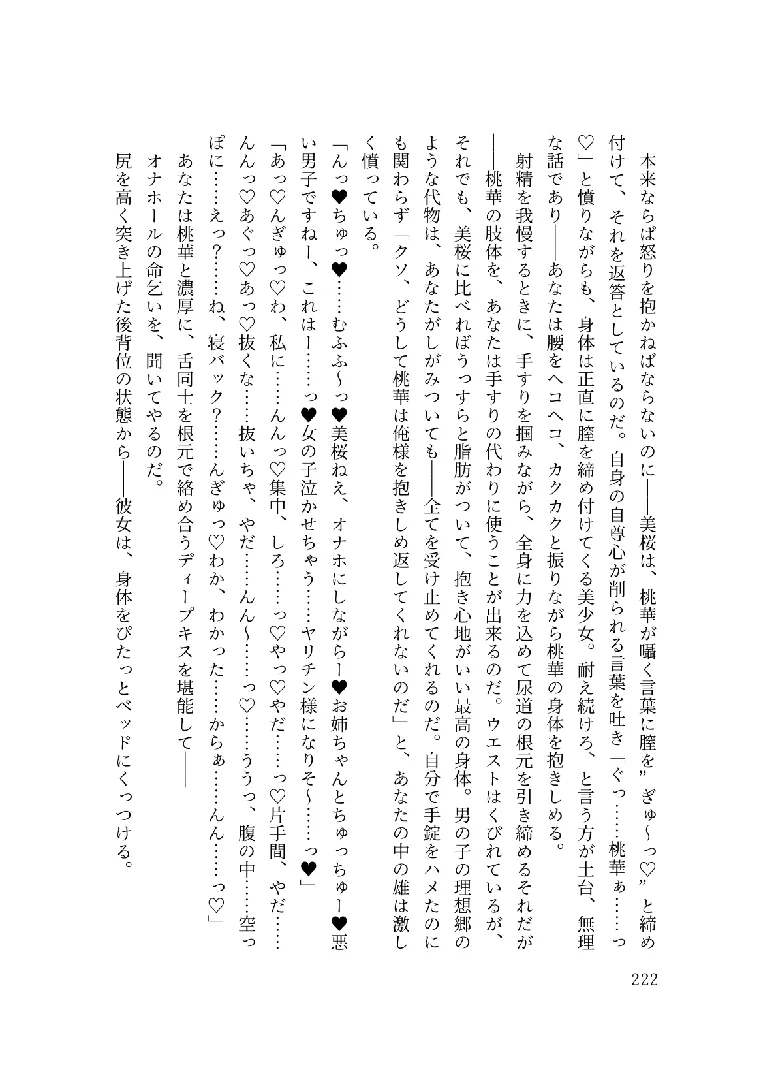 本来ならば怒りを抱かねばならないのに――美桜は、桃華が囁く言葉に膣を”ぎゅ～っ♡”と締め
付けて、それを返答としているのだ。自身の自尊心が削られる言葉を吐き「ぐっ……桃華ぁ……っ
♡」と憤りながらも、身体は正直に膣を締め付けてくる美少女。耐え続けろ、と言う方が土台、無理
な話であり――あなたは腰をヘコヘコ、カクカクと振りながら桃華の身体を抱きしめる。
射精を我慢するときに、手すりを掴みながら、全身に力を込めて尿道の根元を引き締めるそれだが
――桃華の肢体を、あなたは手すりの代わりに使うことが出来るのだ。ウエストはくびれているが、
それでも、美桜に比べればうっすらと脂肪がついて、抱き心地がいい最高の身体。男の子の理想郷の
ような代物は、あなたがしがみついても――全てを受け止めてくれるのだ。自分で手錠をハメたのに
も関わらず「クソ、どうして桃華は俺様を抱きしめ返してくれないのだ」と、あなたの中の雄は激し
く憤っている。
「んっ♥ちゅっ♥……むふふ～っ♥美桜ねえ、オナホにしながらー♥お姉ちゃんとちゅっちゅー♥悪
い男子ですねー、これはー……っ♥女の子泣かせちゃう……ヤリチン様になりそ～……っ♥」
「あっ♡んぎゅっ♡わ、私に……んんっ♡集中、しろ……っ♡やっ♡やだ……っ♡片手間、やだ……
んんっ♡あぐっ♡あっ♡抜くな……抜いちゃ、やだ……んん～……っ♡……ううっ、腹の中……空っ
ぽに……えっ？……ね、寝バック？……んぎゅっ♡わか、わかった……からぁ……んん……っ♡」
あなたは桃華と濃厚に、舌同士を根元で絡め合うディープキスを堪能して――
オナホールの命乞いを、聞いてやるのだ。
尻を高く突き上げた後背位の状態から――彼女は、身体をぴたっとベッドにくっつける。
222